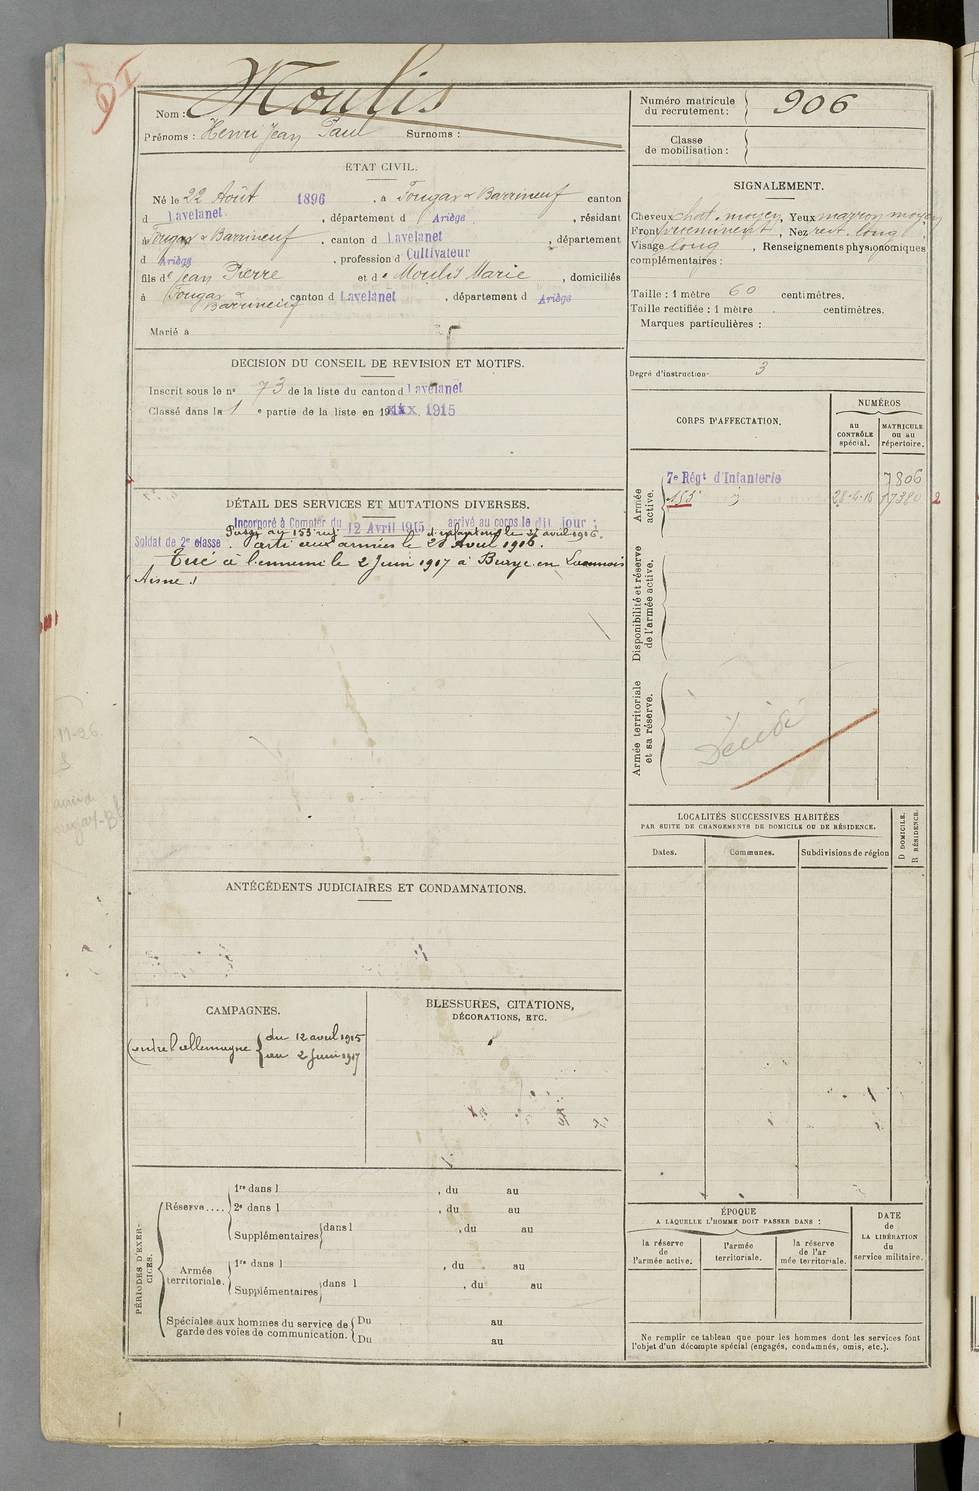 Nom : Moulis
Prénoms : Henri Jean Paul Surnoms :
Numéro matricule du recrutement : 906
Classe de mobilisation :
ÉTAT CIVIL.
Né le 22 Août 1896, à Fougax & Barrineuf canton
d Lavelanet, département d Ariège, résidant
à Fougax & Barrineuf, canton d Lavelanet, département
d Ariège, profession d Cultivateur
fils de Jean Pierre et de Moulis Marie, domiciliés
à Fougax & Barrineuf canton d Lavelanet, département d Ariège
Marié à
DECISION DU CONSEIL DE REVISION ET MOTIFS.
Inscrit sous le n° 73 de la liste du canton d Lavelanet
Classé dans la 1 e partie de la liste en 19 1915
DÉTAIL DES SERVICES ET MUTATIONS DIVERSES.
Incorporé à Compter du 12 Avril 1915, arrivé au corps le dit jour ;
Soldat de 2e classe.
Passé au 153 d'infanterie le 28 avril 1916.
Parti aux armées le 28 Avril 1916.
Tué à l'ennemi le 2 Juin 1917 à en Laonnois
Aisne
ANTÉCÉDENTS JUDICIAIRES ET CONDAMNATIONS.
CAMPAGNES.
Contre l'allemagne { du 12 avril 1915
au 2 Juin 1917
BLESSURES, CITATIONS,
DÉCORATIONS, ETC.
PÉRIODES D'EXERCICES.
Réserve.... 1re dans l , du au
2e dans l , du au
Supplémentaires dans l , du au
Armée territoriale. 1re dans l , du au
Supplémentaires dans l , du au
Spéciales aux hommes du service de Du au
garde des voies de communication. Du au
SIGNALEMENT.
Cheveux chat. moyen, Yeux marron moyen
Front proéminent, Nez rect. long
Visage long, Renseignements physionomiques
complémentaires :
Taille : 1 mètre 60 centimètres.
Taille rectifiée : 1 mètre centimètres.
Marques particulières :
Degré d'instruction 3
CORPS D'AFFECTATION.
NUMÉROS
au CONTRÔLE spécial.
MATRICULE ou au répertoire.
Armée active.
7e Régt d'Infanterie 7806
153 28-4-16 17380 2
Disponibilité et réserve de l'armée active.
Armée territoriale et sa réserve.
Décédé
LOCALITÉS SUCCESSIVES HABITÉES
PAR SUITE DE CHANGEMENTS DE DOMICILE OU DE RÉSIDENCE.
Dates. Communes. Subdivisions de région
D DOMICILE.
R RÉSIDENCE.
ÉPOQUE
A LAQUELLE L'HOMME DOIT PASSER DANS :
la réserve de l'armée active.
l'armée territoriale.
la réserve de l'armée territoriale.
DATE de LA LIBÉRATION du service militaire.
Ne remplir ce tableau que pour les hommes dont les services font
l'objet d'un décompte spécial (engagés, condamnés, omis, etc.).
11-26